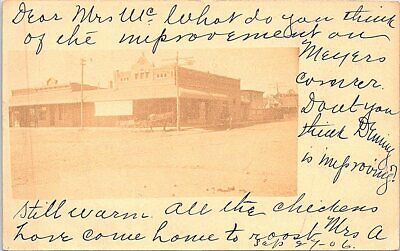 Dear Mrs Mc. What do you think
of the improvement on
Meyers
corner.
Dont you
think Deming
is improving?
Still warm. All the chickens
have come home to roost Mrs A
Sep 27-06.